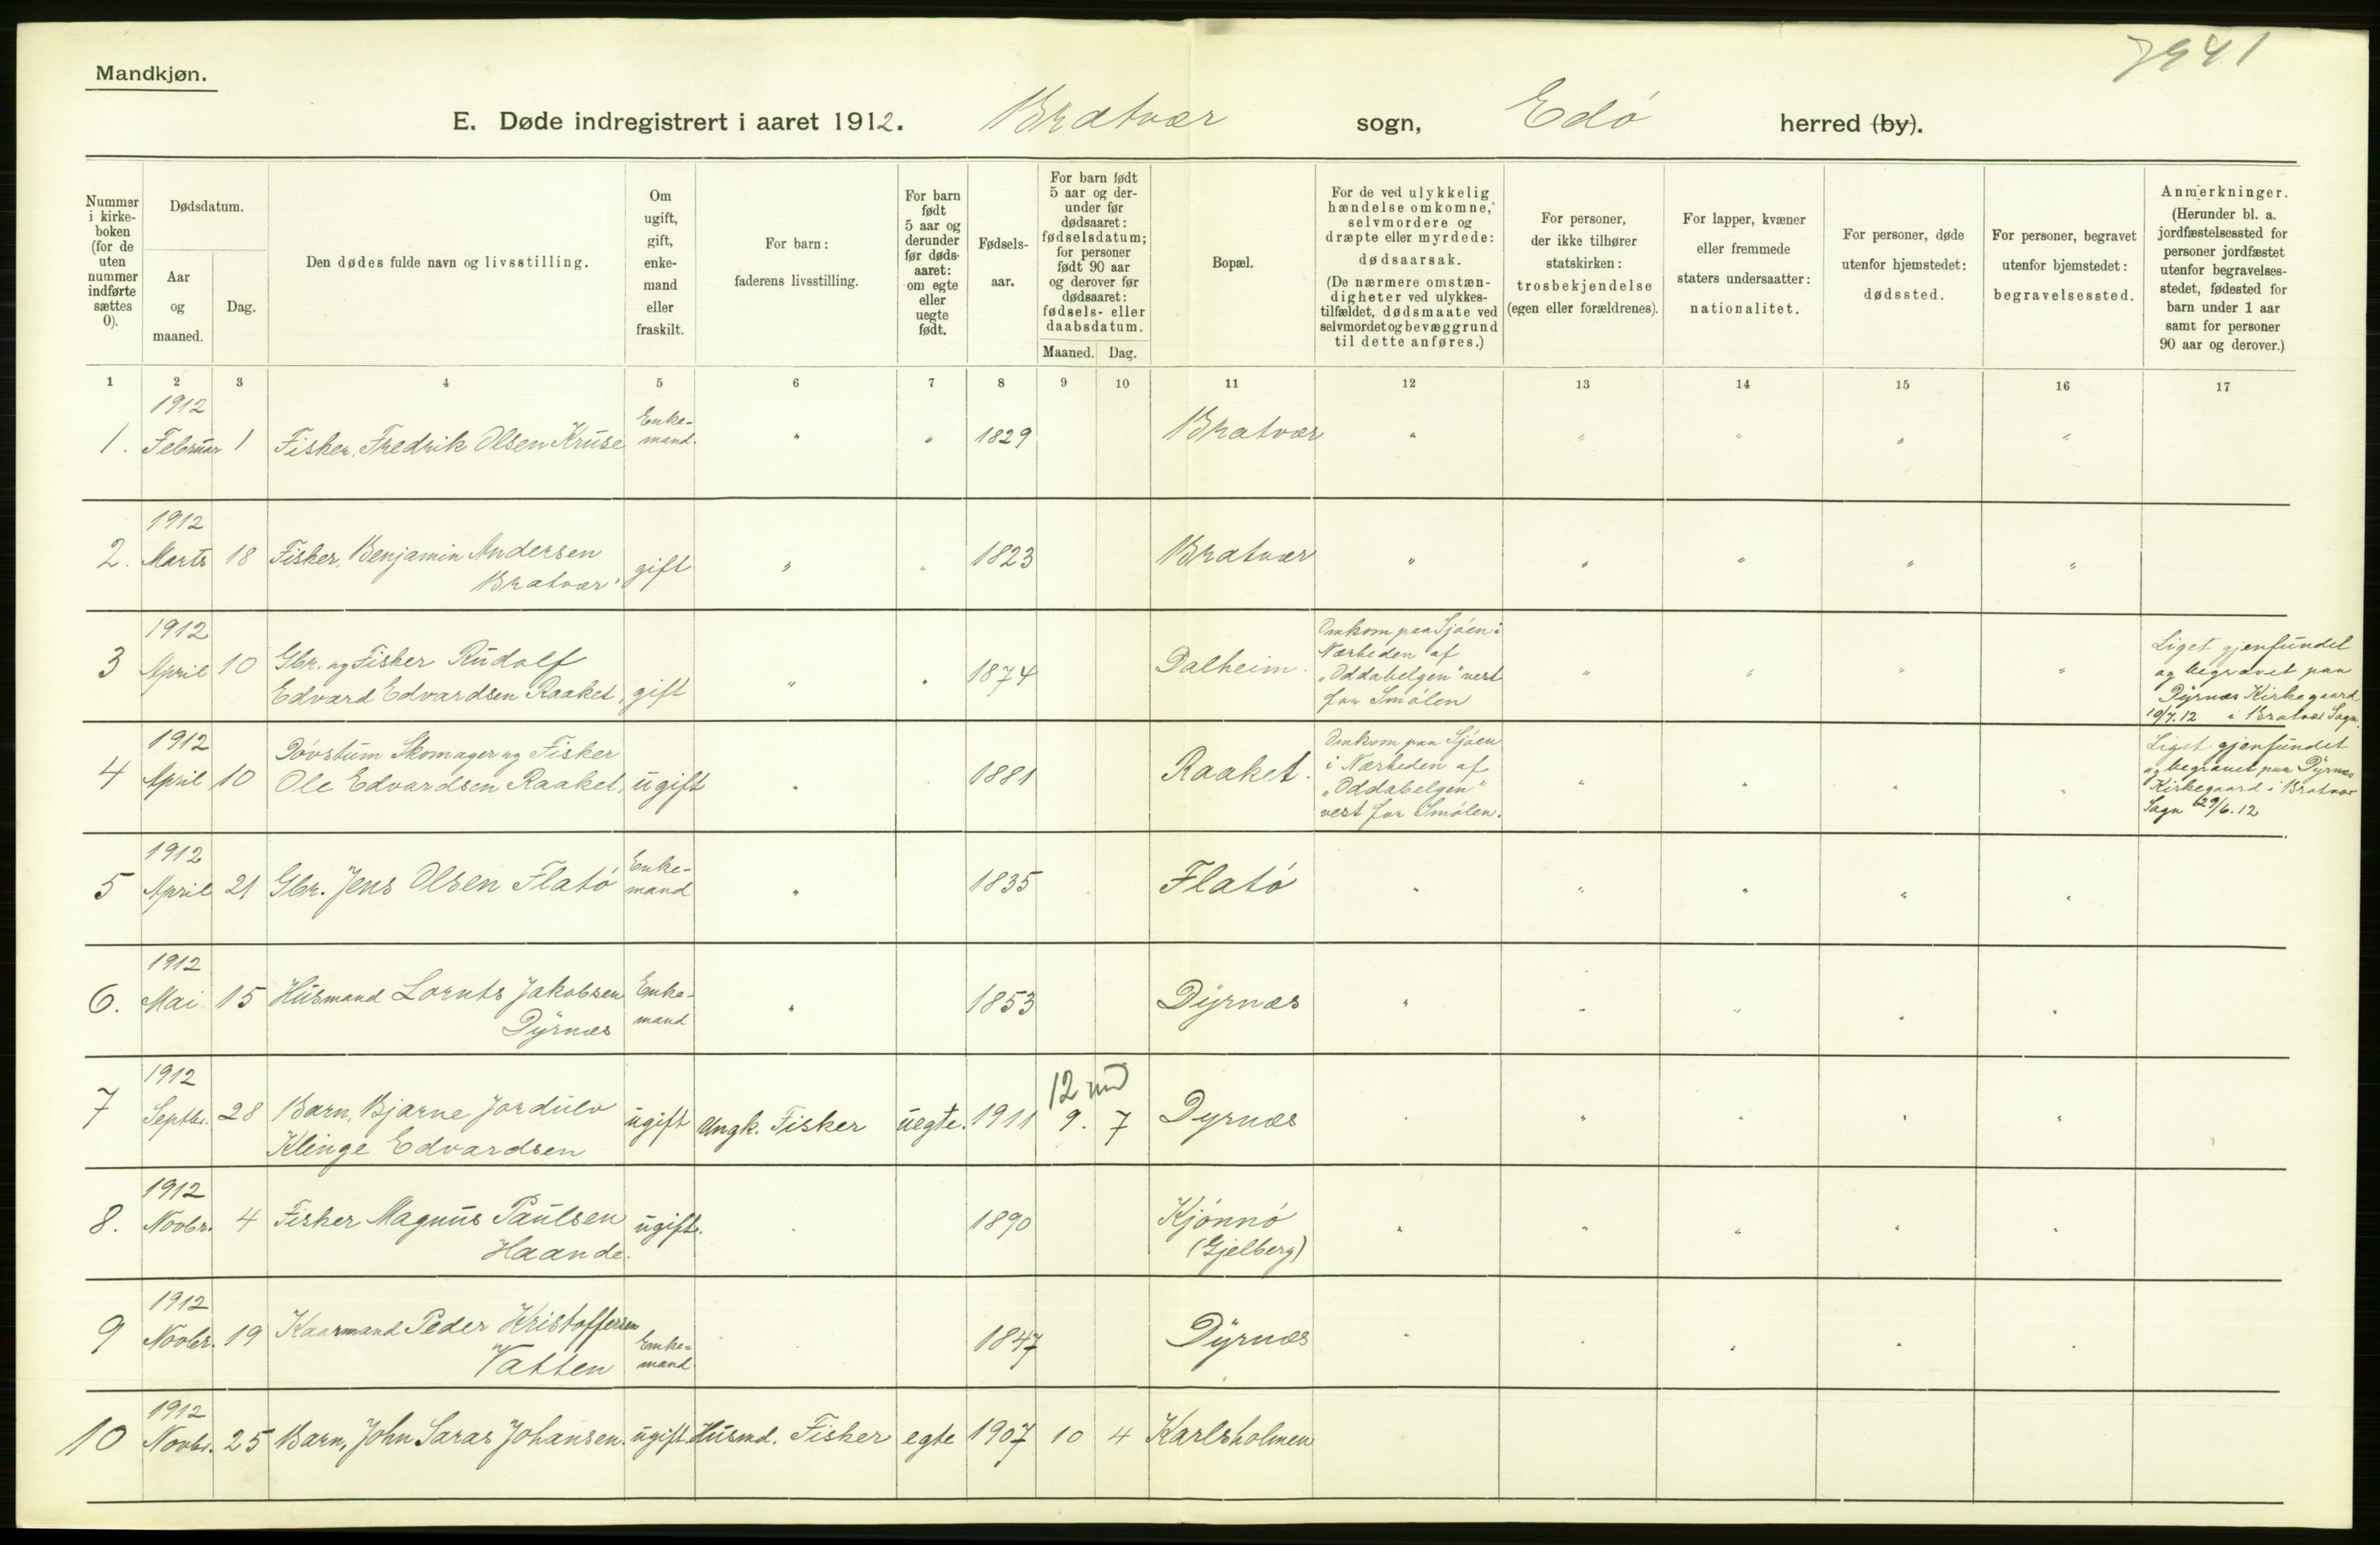 7941
Mandkjøn.
E. Døde indregistrert i aaret 1912. Bratvær sogn, Edö herred (by).
Nummer i kirke-boken (for de uten nummer indførte sættes 0).
Dødsdatum.
Aar og maaned.
Dag.
Den dødes fulde navn og livsstilling.
Om ugift, gift, enke-mand eller fraskilt.
For barn: faderens livsstilling.
For barn født 5 aar og derunder før døds-aaret: om egte eller uegte født.
Fødsels-aar.
For barn født 5 aar og der-under før dødsaaret: fødselsdatum; for personer født 90 aar og derover før dødsaaret: fødsels- eller daabsdatum.
Maaned. Dag.
Bopæl.
For de ved ulykkelig hændelse omkomne, selvmordere og dræpte eller myrdede: dødsaarsak.
(De nærmere omstæn-digheter ved ulykkes-tilfældet, dødsmaate ved selvmordet og bevæggrund til dette anføres.)
For personer, der ikke tilhører statskirken: trosbekjendelse (egen eller forældrenes).
For lapper, kvæner eller fremmede staters undersaatter: nationalitet.
For personer, døde utenfor hjemstedet: dødssted.
For personer, begravet utenfor hjemstedet: begravelsessted.
Anmerkninger.
(Herunder bl. a. jordfæstelsessted for personer jordfæstet utenfor begravelses-stedet, fødested for barn under 1 aar samt for personer 90 aar og derover.)
1 2 3 4 5 6 7 8 9 10 11 12 13 14 15 16 17
1912
1. Februar 1 Fisker, Fredrik Olsen Kruse Enke-mand. " " 1829 Bratvær " " " " "
1912
2. Marts 18 Fisker, Benjamin Andersen Bratvær gift " " 1823 Bratvær " " " " "
1912
3 April 10 Gbr. og Fisker Rudolf
Edvard Edvardsen Raaket, gift " " 1874 Dalheim.
Omkom paa Sjöen i
Nærheden af
"Oddabelgen" vest
for Smölen
" " " "
Liget gjenfundet
og begravet paa
Dyrnæs Kirkegaard
10/7.12 i Bratvær Sogn.
1912
4 April 10 Dövstum Skomager og Fisker
Ole Edvardsen Raaket, ugift " 1881 Raaket.
Omkom paa Sjöen
i Nærheden af
"Oddabelgen"
vest for Smölen.
" " " "
Liget gjenfundet
og begravet paa Dyrnæs
Kirkegaard i Bratvær
Sogn 29/6.12
1912
5 April 21 Gbr. Jens Olsen Flatö Enke-mand " 1835 Flatö " " " " "
1912
6. Mai 15 Husmand Lornts Jakobsen
Dyrnæs Enke-mand " 1853 Dyrnæs " " " " "
1912
7 Septbr. 28 Barn, Bjarne Jordulv
Klinge Edvardsen ugift Ungk. Fisker uegte. 1911 12 md 9. 7 Dyrnæs " " " " "
1912
8. Novbr. 4 Fisker Magnus Paulsen
Haande. ugift. " 1890 Kjönnö
(Gjelberg) " " " " "
1912
9 Novbr. 19 Kaarmand Peder Kristoffersen
Vatten Enke-mand 1847 Dyrnæs " " " " "
1912
10 Novbr. 25 Barn, John Saras Johansen. ugift Husmd. Fisker egte 1907 10 4 Karlsholmen